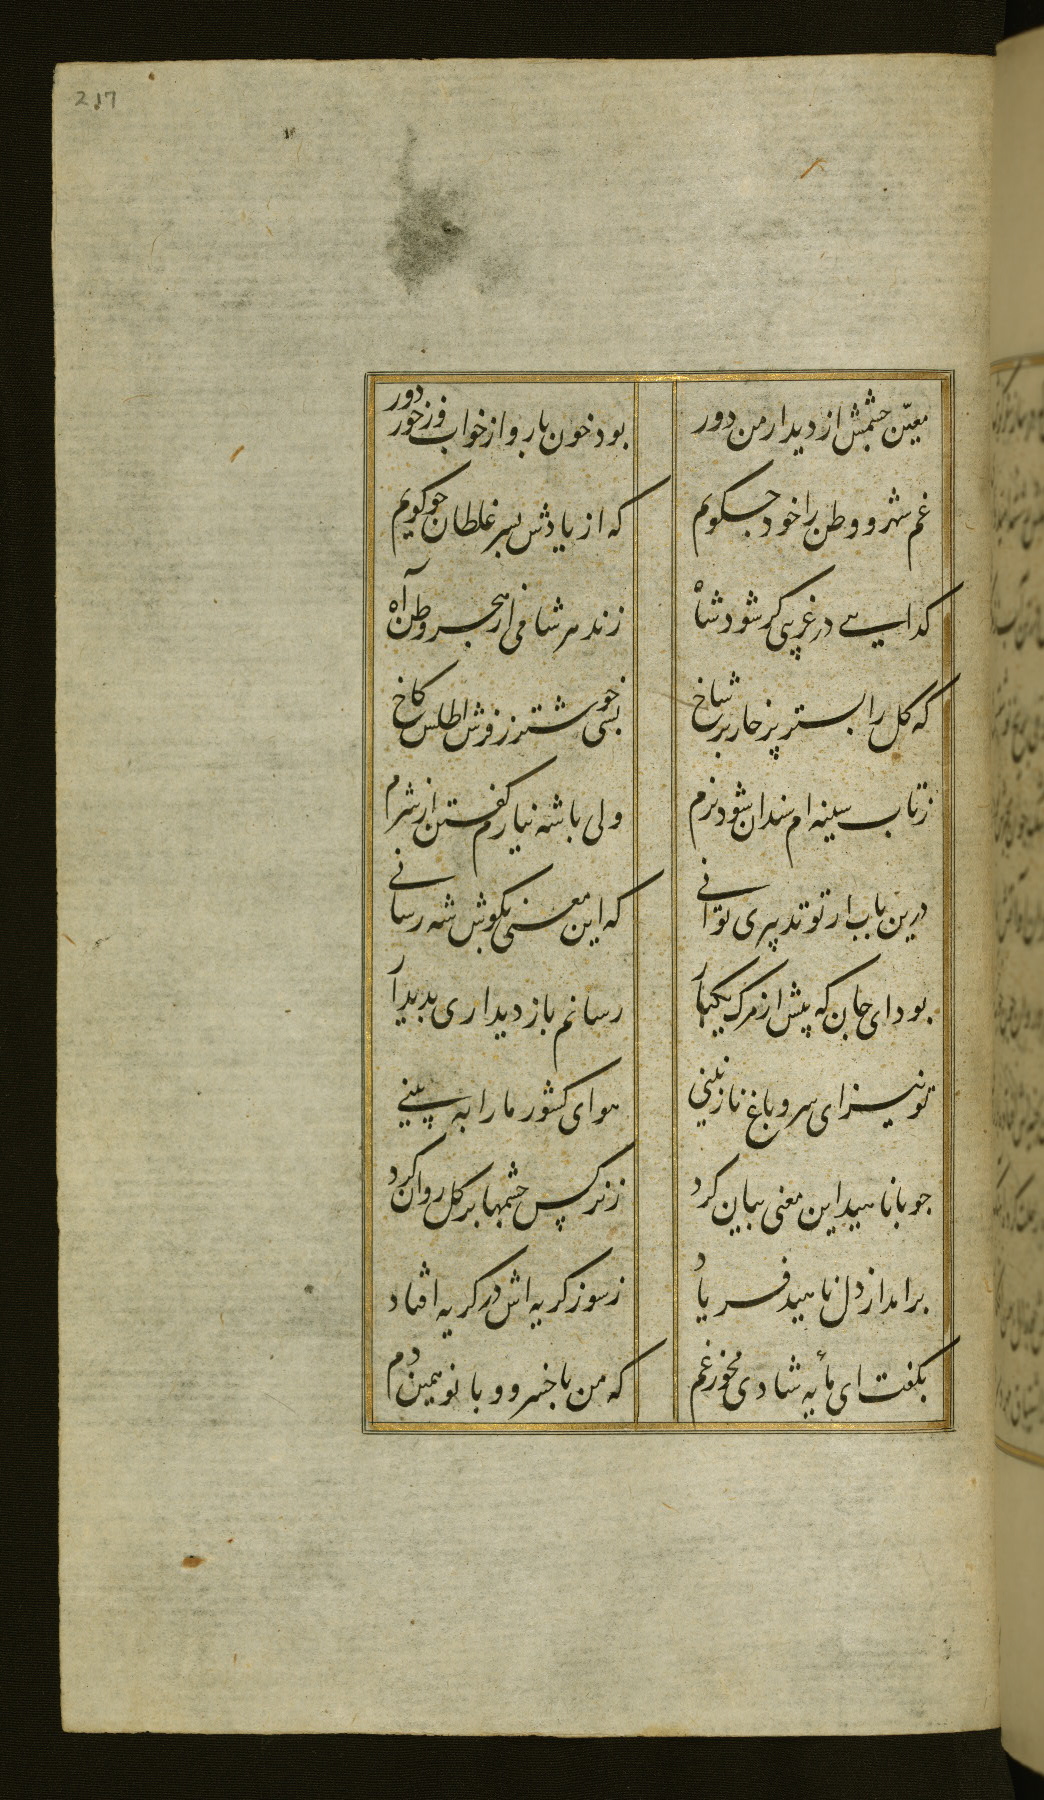 217
معیّن چشمش از دیدار من دور
بود خون بار و از خواب و ز خور دور
غم شهر و وطن را خود چکویم
که از یادش بسر غلطان چو کویم
کدایی در غریبی کر شود شاه
زند هر شامی از هجر وطن آه
که کل را بستر پر خار بر شاخ
بسی خوشتر ز فرش اطلس کاخ
ز تاب سینه ام سندان شود نرم
ولی با شه نیارم کفتن از شرم
درین باب ار تو تدبیری توانی
که این معنی بکوش شه رسانی
بود ای جان که پیش از مرک یکبار
رسانم باز دیداری بدیدار
تو نیز ای سرو باغ نازنینی
هوای کشور ما را به بینی
چو با ناهید این معنی بیان کرد
ز نرکس چشمها بر کل روان کرد
برامد از دل ناهید فریاد
ز سوز کریه اش در کریه افتاد
بکفت ای مأیه شادی مخور غم
که من با خسرو و بانو همین دم